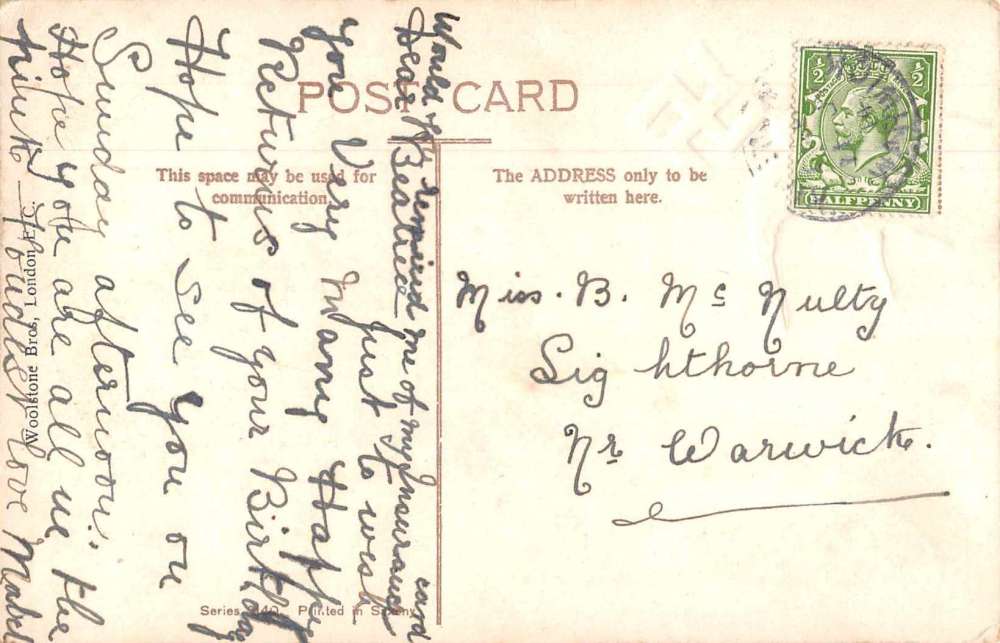 POST CARD
This space may be used for
communication.
The ADDRESS only to be
written here.
½ ½
HALFPENNY
Miss. B. Mc Nulty
Lighthorne
Nr Warwick.
Would
remind me of my Insurance card
Dear Beatrice just to wish
you Very Many Happy
Returns of your Birthday
Hope to See you on
Sunday afternoon.
Hope you are all in the
pink love Mabel
Woolstone Bros, London E.C.
Series Printed in Saxony